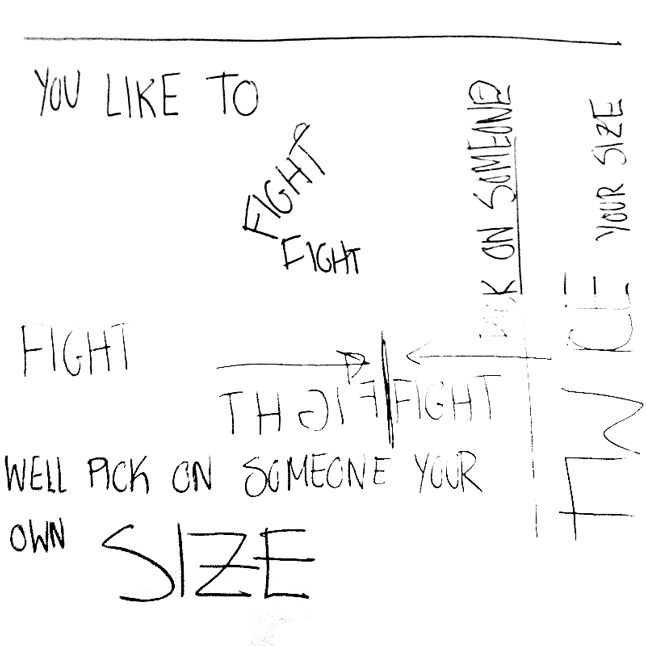 YOU LIKE TO
FIGHT
FIGHT
FIGHT
FIGHT
FIGHT
WELL PICK ON SOMEONE YOUR
OWN SIZE
ON SOMEONE
YOUR SIZE